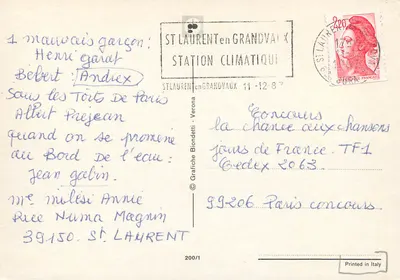 1 mauvais garçon:
Henri garat
Bebert: Andrex
Sous les Toits de Paris
Albert Prejean
quand on se promène
au Bord De l'eau:
jean gabin.
Me milesi Annie
Rue Numa Magnin
39150. St. LAURENT
ST LAURENT en GRANDVAUX
STATION CLIMATIQUE
ST LAURENT en GRANDVAUX 11-12-8
2,20
Concours
la chance aux chansons
jours de France. TF1
Cedex 2063.
99206. Paris concours.
© Grafiche Biondetti - Verona
200/1
Printed in Italy